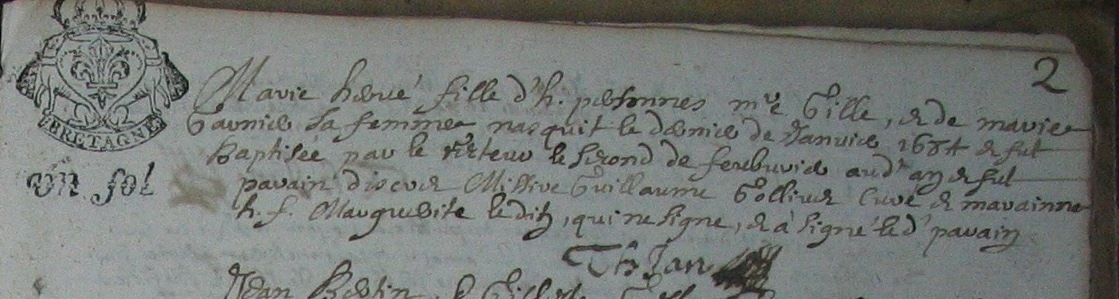 2
BRETAGNE
un sol
Marie hervé fille d'h. personnes mre Gille, & de marie
Garnier sa femme nasquit le dernier de Janvier 1684 & fut
baptisée par le recteur le second de feubvrier audt an & fut
parain discret Missire Guillaume Gollivet curé & marainne
h. f. Marguerite ledih, qui ne signe, & a signé led' parain
Jean
Jean